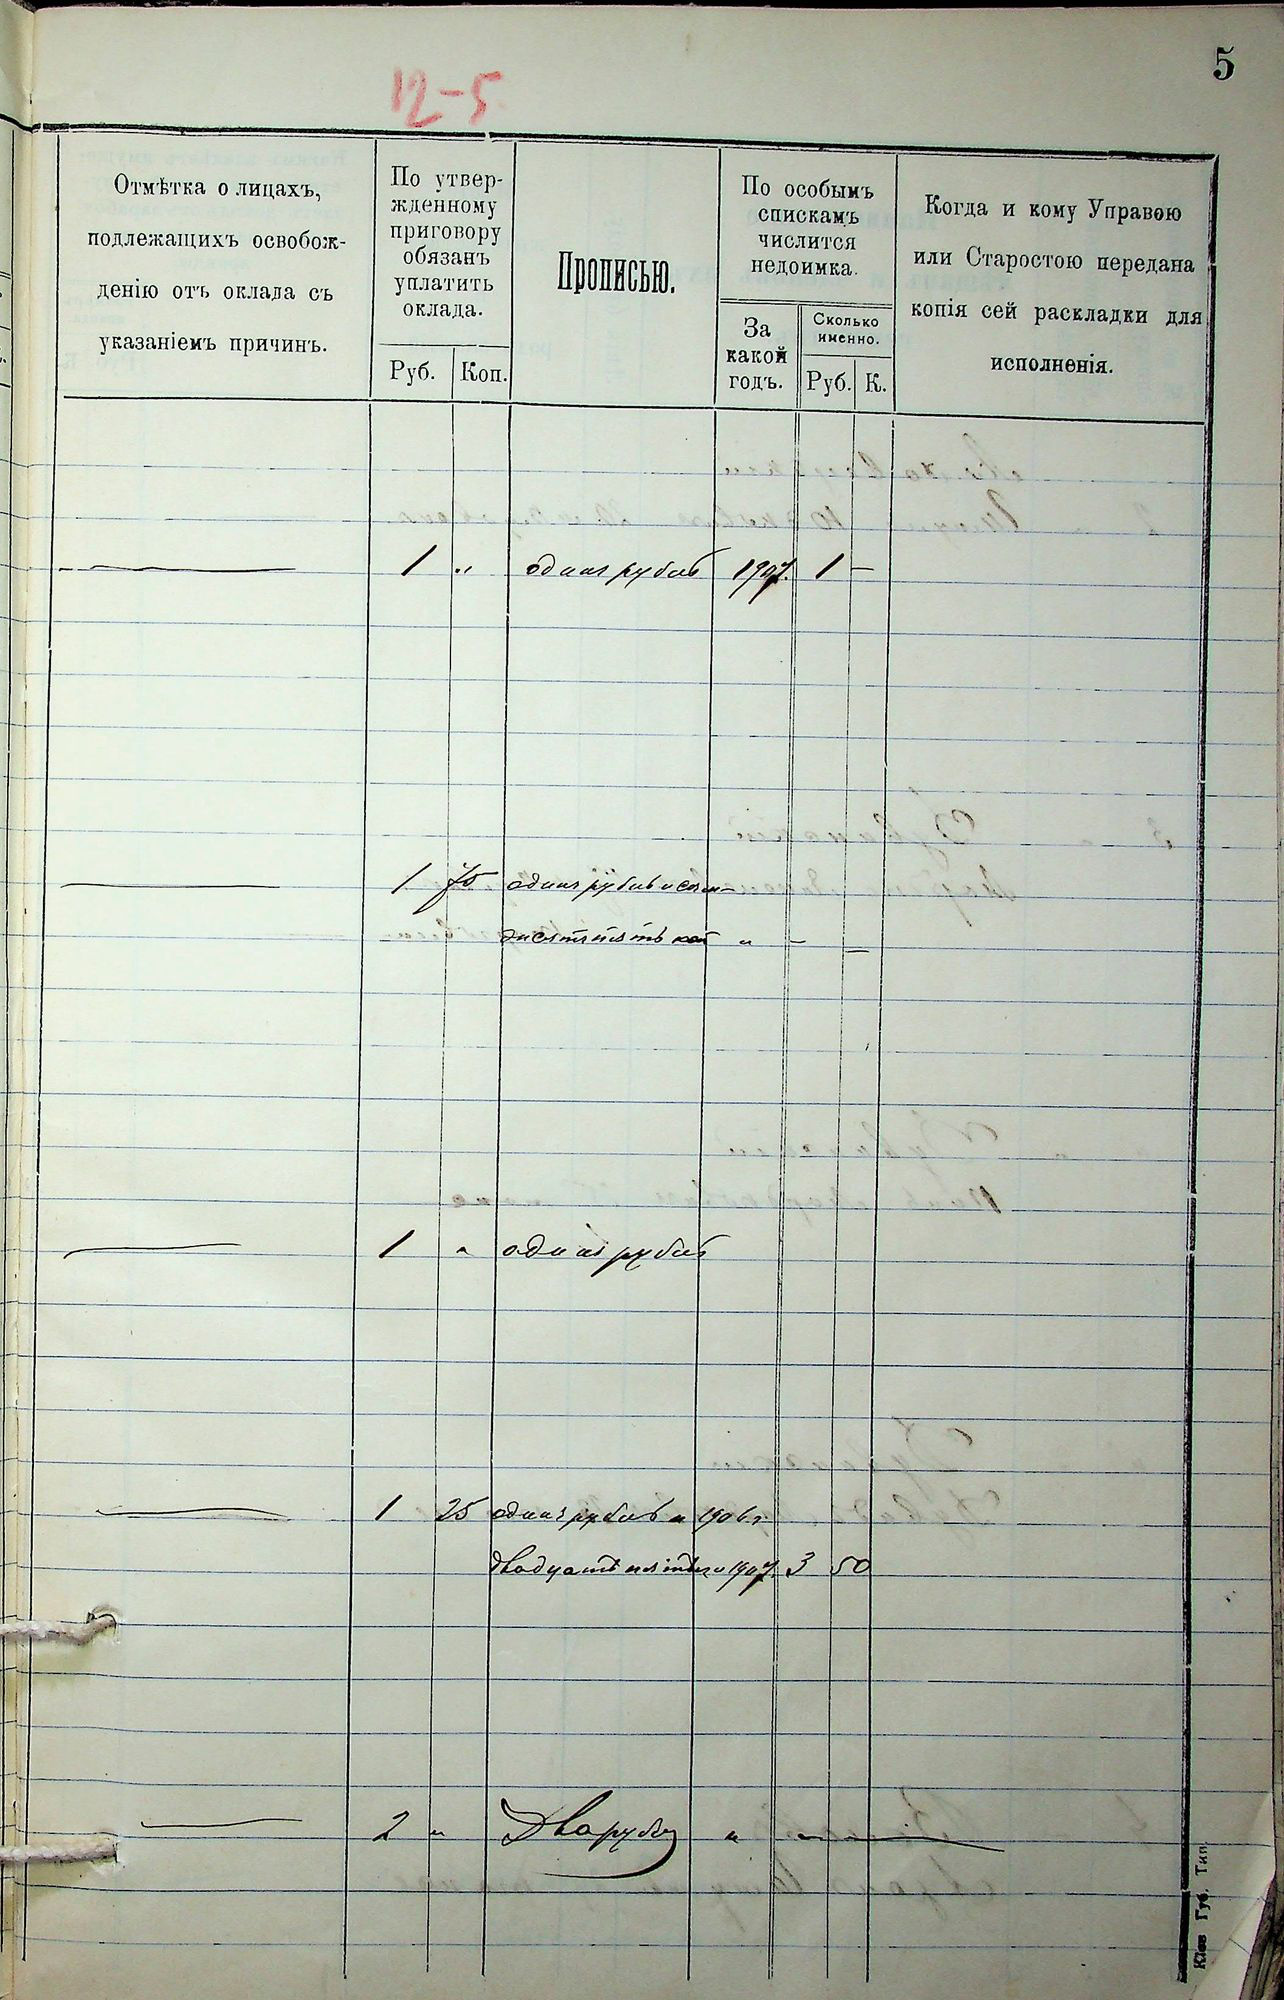 5
12-5
Отмѣтка о лицахъ,
подлежащихъ освобож-
денію отъ оклада съ
указаніемъ причинъ.
По утвер-
жденному
приговору
обязанъ
уплатить
оклада.
Руб. Коп.
Прописью.
По особымъ
спискамъ
числится
недоимка.
За
какой
годъ.
Сколько
именно.
Руб. К.
Когда и кому Управою
или Старостою передана
копія сей раскладки для
исполненія.
— 1 " одинъ рубль 1907. 1 —
— 1 75 одинъ рубль и сем-
десятъ пять коп " — —
— 1 " одинъ рубль
— 1 25 одинъ рубль и 1906 г.
двадцать пять и 1907. 3 50
— 2 " Два рубля " —
Кіев Губ. Тип.